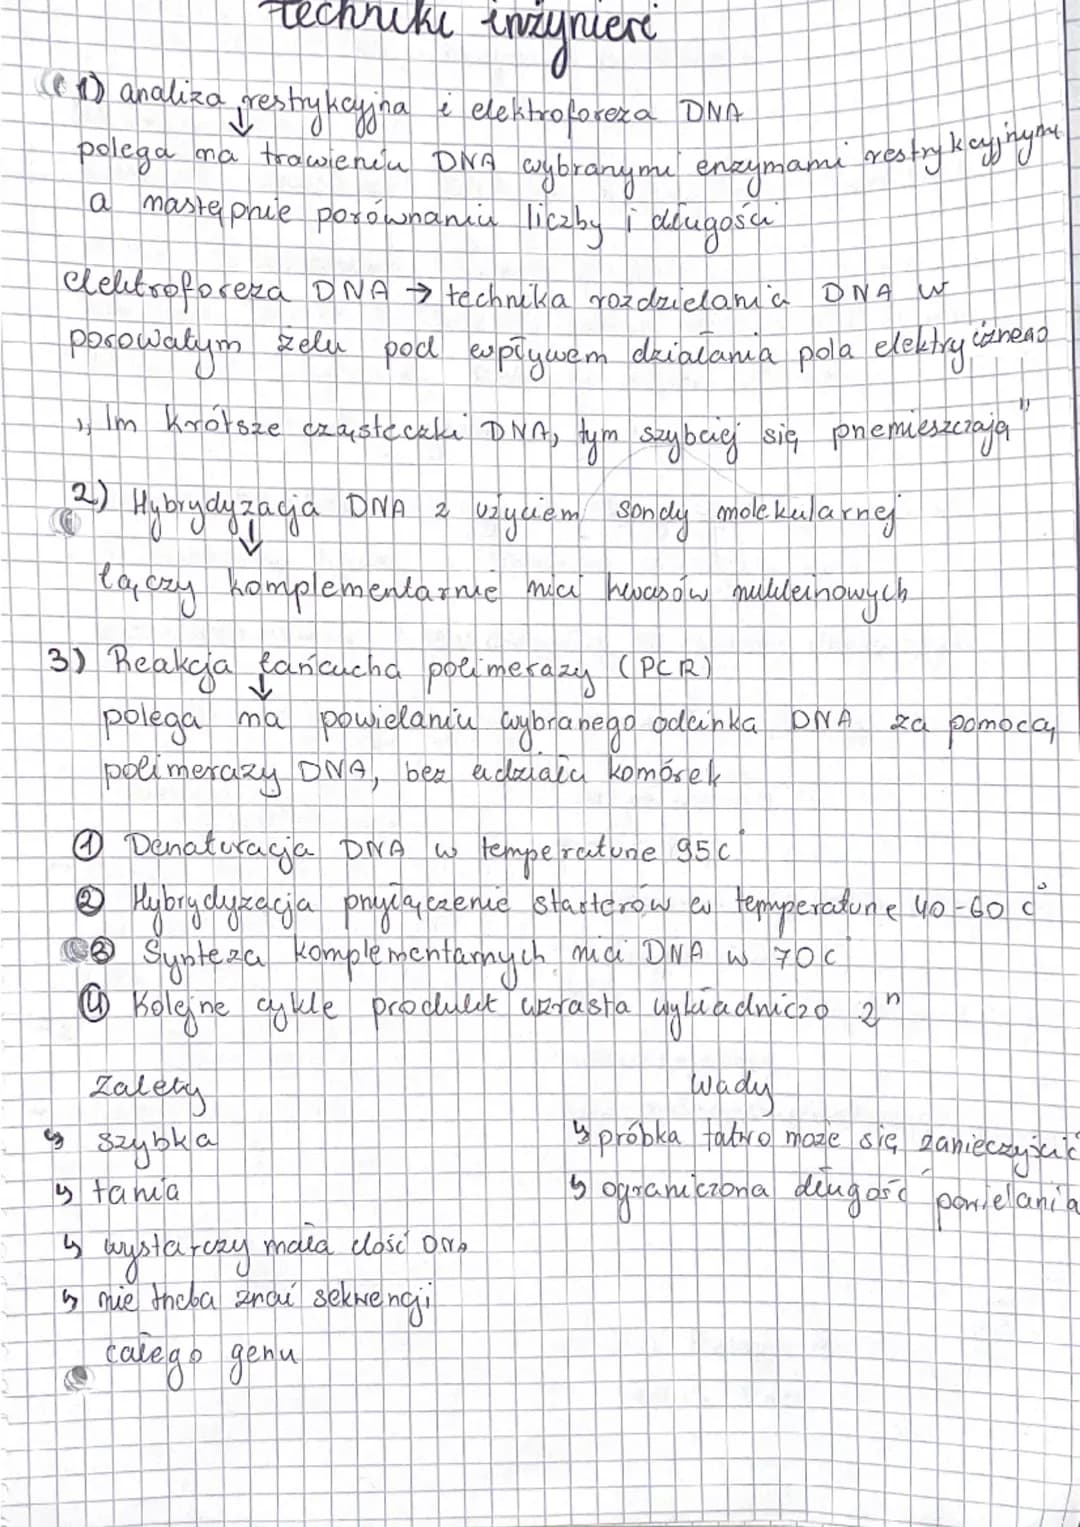 techniki inżynieri
1) analiza restrykcyjna i elektroforeza DNA
polega na trawieniu DNA wybranymi enzymami restrykcyjnymi
a następnie porównaniu liczby i długości
elektroforeza DNA → technika rozdzielania DNA w
porowatym żelu pod wpływem działania pola elektrycznego
„Im krótsze cząsteczki DNA, tym szybciej się przemieszczają"
2) Hybrydyzacja DNA z użyciem sondy molekularnej
łączy komplementarnie nici kwasów nukleinowych
3) Reakcja łańcucha polimerazy (PCR)
polega na powielaniu wybranego odcinka DNA za pomocą
polimerazy DNA, bez udziału komórek
① Denaturacja DNA w temperaturze 95°C
② Hybrydyzacja przyłączenie starterów w temperaturze 40-60°C
③ Synteza komplementarnych nici DNA w 70°C
④ Kolejne cykle produkt wzrasta wykładniczo 2ⁿ
Zalety
↳ szybka
↳ tania
↳ wystarczy mała ilość DNA
↳ nie trzeba znać sekwencji
całego genu
Wady
↳ próbka łatwo może się zanieczyścić
↳ ograniczona długość powielania